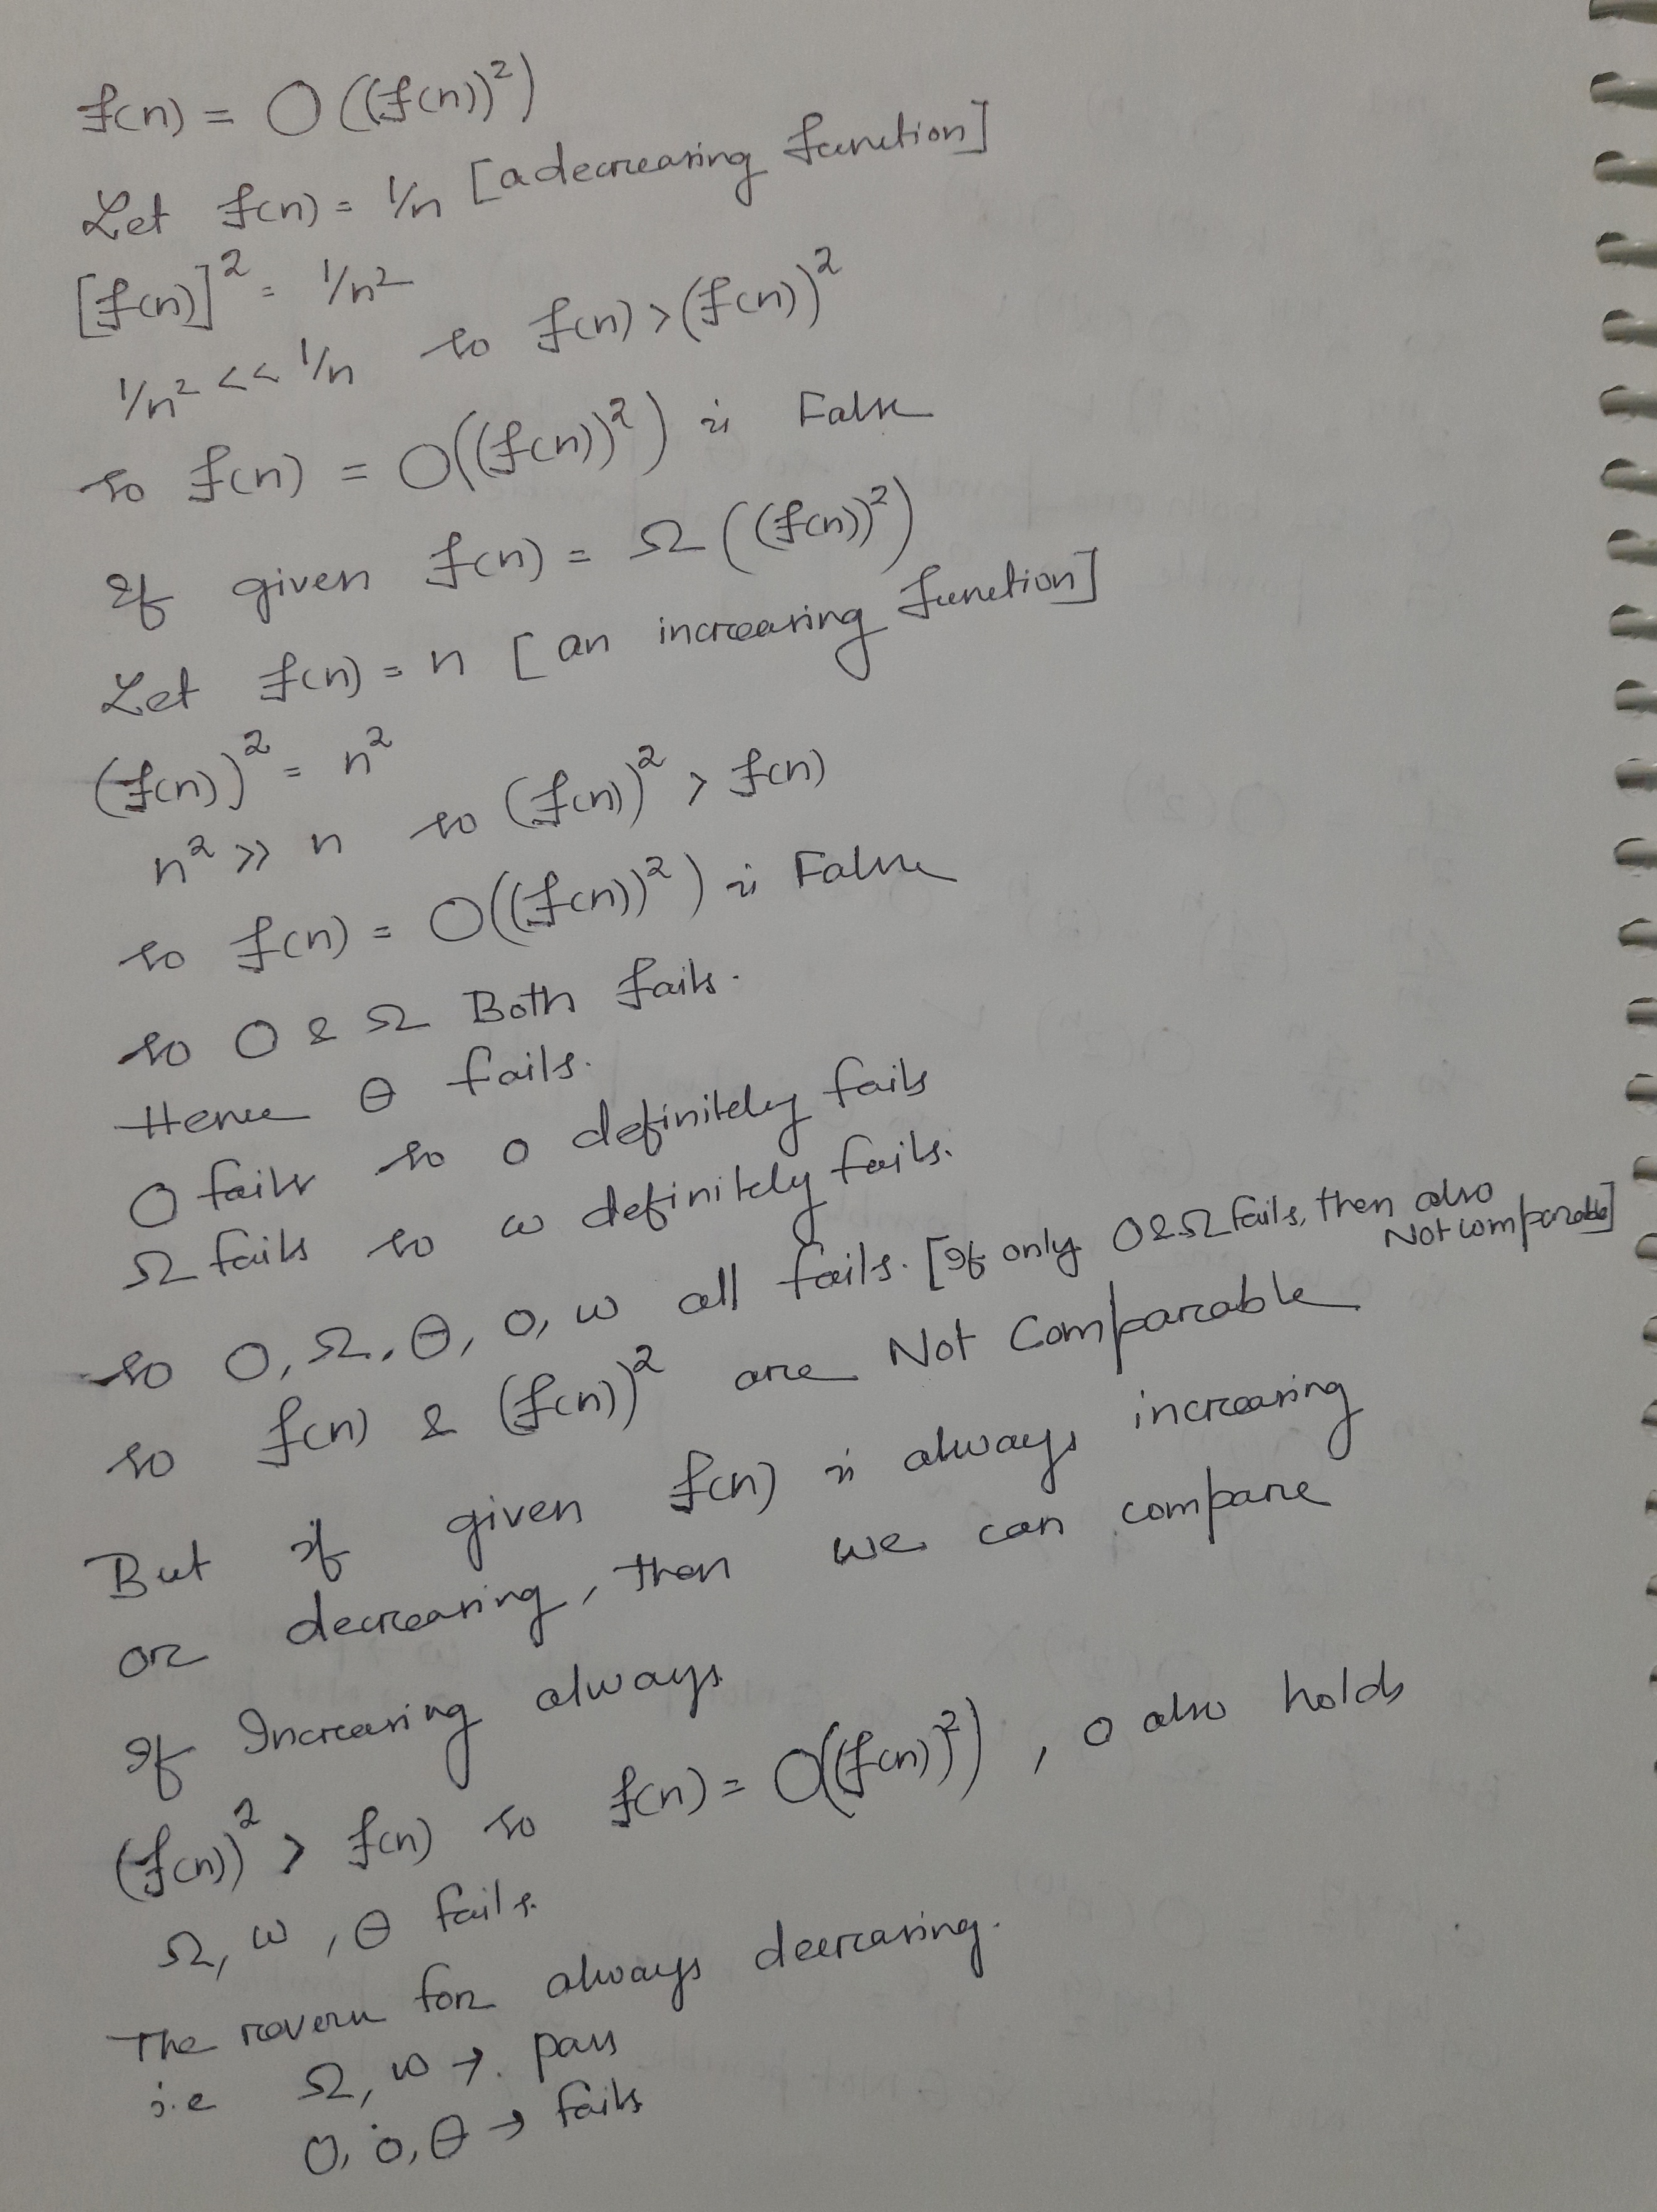 f(n) = O((f(n))²)
Let f(n) = 1/n [a decreasing function]
[f(n)]² = 1/n²
1/n² << 1/n so f(n) > (f(n))²
so f(n) = O((f(n))²) is False
If given f(n) = Ω((f(n))²)
Let f(n) = n [an increasing function]
(f(n))² = n²
n² >> n so (f(n))² > f(n)
so f(n) = O((f(n))²) is False
so O & Ω Both fails.
Hence θ fails.
O fails so o definitely fails
Ω fails so ω definitely fails.
so O, Ω, θ, o, ω all fails. [If only O & Ω fails, then also Not comparable]
so f(n) & (f(n))² are Not Comparable
But if given f(n) is always increasing
or decreasing, then we can compare
If Increasing always
(f(n))² > f(n) so f(n) = O((f(n))²), o also holds
Ω, ω, θ fails.
The revers for always decreasing.
i.e Ω, ω → pass
O, o, θ → fails